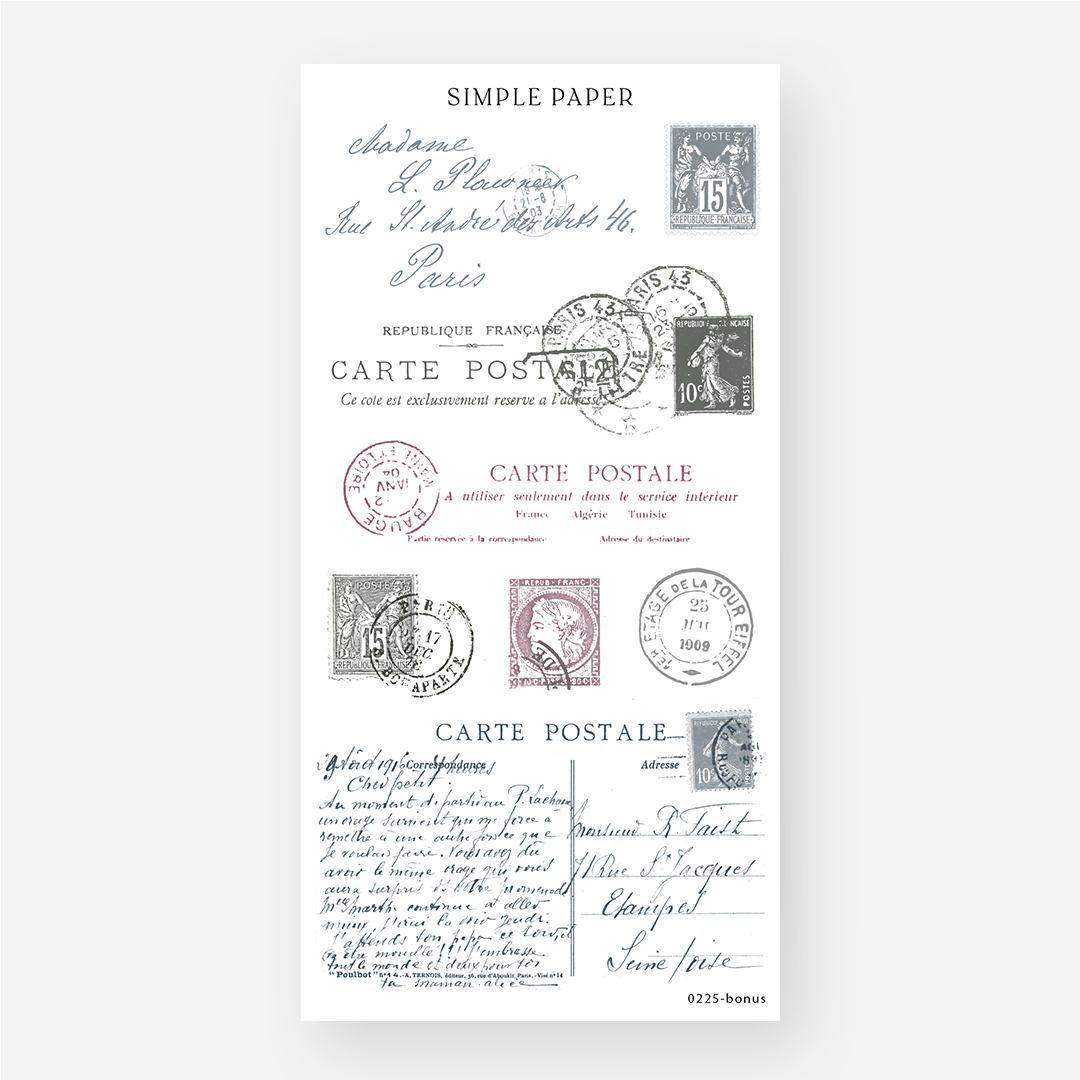 SIMPLE PAPER
Madame
L. Plawneek
Rue St. André des Arts 46.
Paris
PARIS
21-8
03
POSTE
15
REPUBLIQUE FRANÇAISE
PARIS 43
PARIS 43
REPUBLIQUE FRANÇAISE
CARTE POSTALE
Ce cote est exclusivement reserve a l'adresse
12
REPUBLIQUE FRANÇAISE
10c
POSTES
MAINE ET LOIRE
12
JANV
04
BAUGÉ
CARTE POSTALE
A utiliser seulement dans le service intérieur
France Algérie Tunisie
Partie reservee à la correspondance Adresse du destinataire
POSTE
15
REPUBLIQUE FRANÇAISE
PARIS
17
DEC
BONAPARTE
REPUB·FRANC·
DE
1ER ETAGE DE LA TOUR EIFFEL
25
1909
CARTE POSTALE
Correspondance
Adresse
10c
PARIS
29 Août 1916
heures
Cher petit.
Au moment de partir au P. Lachaise
un orage survient qui me force à
remettre à une autre fois ce que
je voulais faire. Vous avez dû
avoir le même orage qui vous
aura surpris ds votre promenade
Mlle Marthe continue à aller
mieux, j'irai la voir Jeudi.
J'attends ton papa ce soir, il
va être mouillé!!! J'embrasse
tout le monde et deux pour toi
ta maman. alice
"Poulbot" nº14.-A. TERNOIS, éditeur, 36, rue d'Aboukir, Paris. - Visé nº14
Monsieur R. Taist
71 Rue St Jacques
Etampes
Seine / oise
0225-bonus